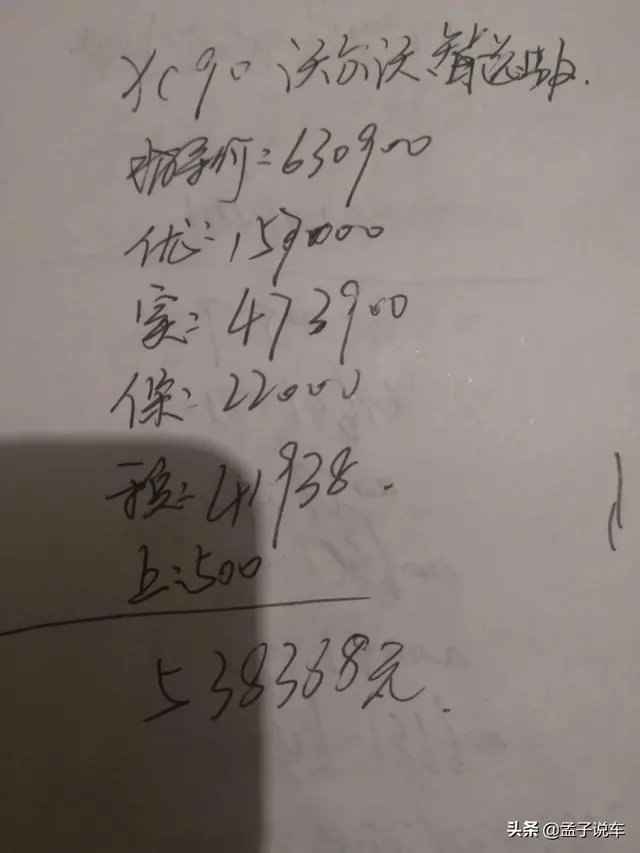 XC90 沃尔沃 智
指导价=630900
优:157000
实:473900
保:22000
税:41938.
上:500
538338元.
头条 @孟子说车